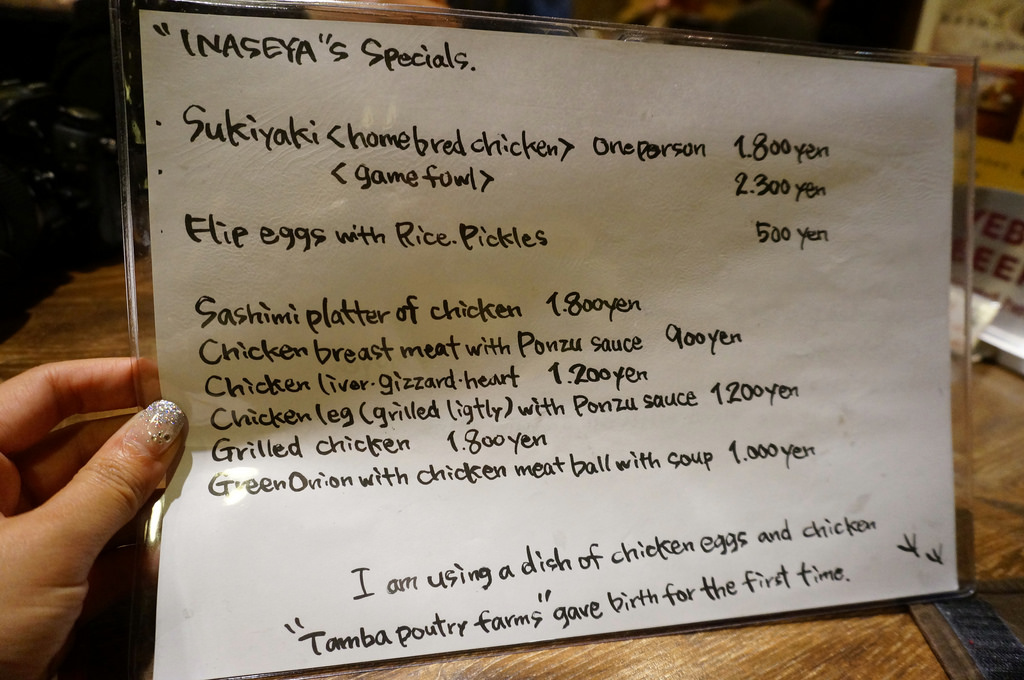 "INASEYA"s Specials.
· Sukiyaki <homebred chicken> one person 1.800 yen
· <game fowl> 2.300 yen
· Flip eggs with Rice.Pickles 500 yen
Sashimi platter of chicken 1.800yen
Chicken breast meat with Ponzu sauce 900yen
Chicken liver·gizzard·heart 1.200yen
Chicken leg (grilled ligtly) with Ponzu sauce 1200yen
Grilled chicken 1.800yen
Green Onion with chicken meat ball with soup 1.000yen
I am using a dish of chicken eggs and chicken
"Tamba poutry farms" gave birth for the first time.